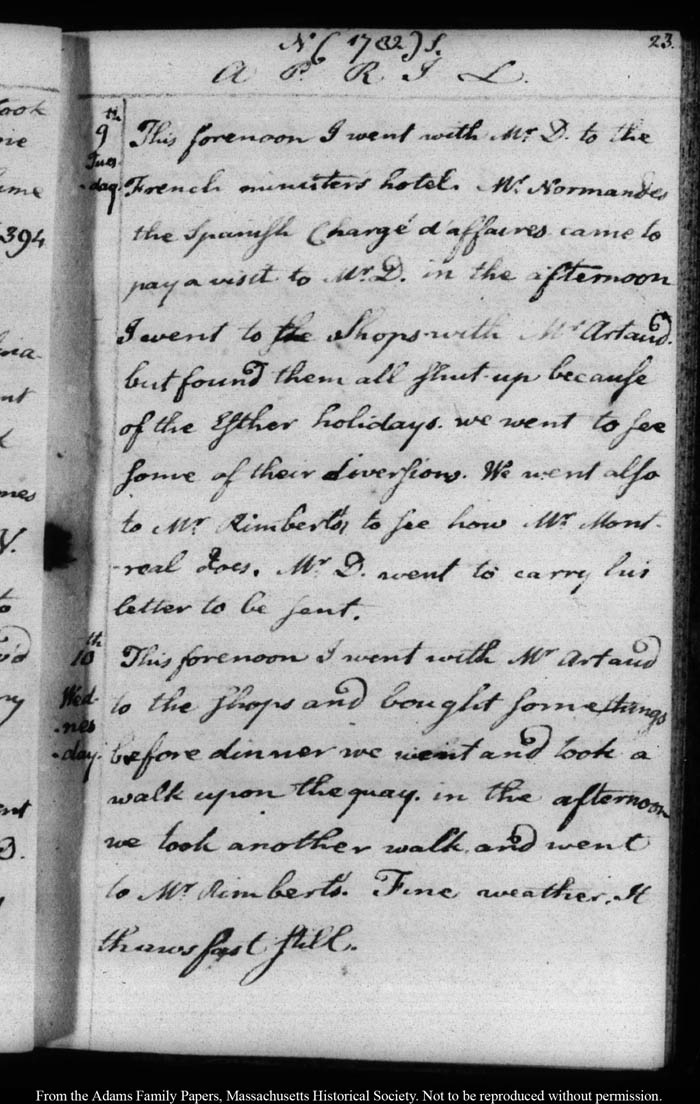 N (1782) S.
23.
A P R I L.
9th Tues-day.
This forenoon I went with Mr. D. to the
French ministers hotel. Mr. Normandes
the Spanish Chargé d'affaires came to
pay a visit to Mr. D. in the afternoon
I went to the Shops with Mr. Artaud.
but found them all shut up because
of the Esther holidays. we went to see
some of their diversions. We went also
to Mr. Rimbert's, to see how Mr. Mont-
-real does. Mr. D. went to carry his
letter to be sent.
10th Wed-nes-day.
This forenoon I went with Mr. Artaud
to the shops and bought some things
before dinner we went and took a
walk upon the quay. in the afternoon
we took another walk and went
to Mr. Rimbert's. Fine weather. It
thaws fast still.
ook
ne
ume
394
nt
nes
V.
to
ry
nt
From the Adams Family Papers, Massachusetts Historical Society. Not to be reproduced without permission.